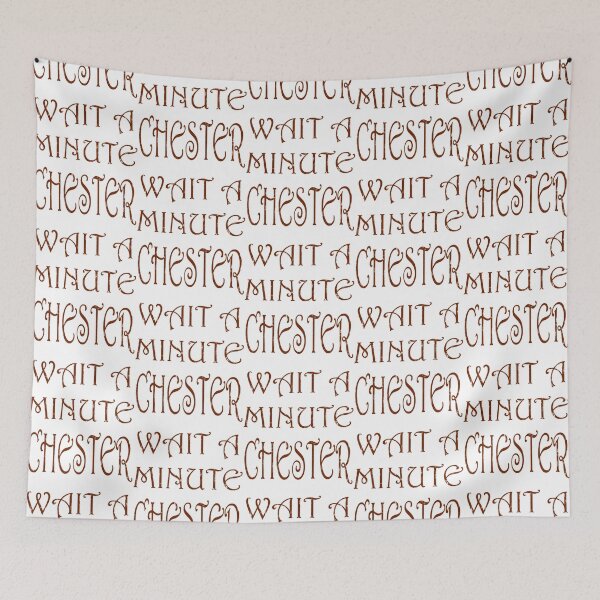 CHESTER MINUTE CHESTER MINUTE CHESTER
WAIT A CHESTER WAIT A CHESTER WAIT A
MINUTE MINUTE MINUTE
CHESTER WAIT A CHESTER WAIT A CHESTER
MINUTE MINUTE
WAIT A CHESTER WAIT A CHESTER WAIT A
MINUTE MINUTE MINUTE
CHESTER WAIT A CHESTER WAIT A CHESTER
MINUTE MINUTE
WAIT A CHESTER WAIT A CHESTER WAIT A
MINUTE MINUTE MINUTE
CHESTER WAIT A CHESTER WAIT A CHESTER
MINUTE MINUTE
WAIT A CHESTER WAIT A CHESTER WAIT A